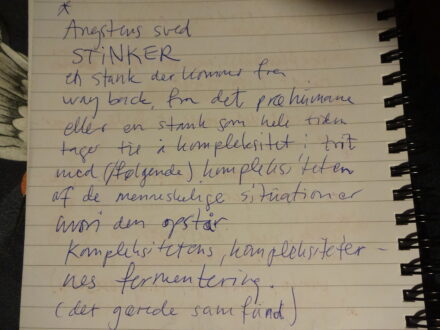 *
Angstens sved
STINKER
en stank der kommer fra
way back, fra det præhumane
eller en stank som hele tiden
tager til i kompleksitet i trit
med (følgende) kompleksiteten
af de menneskelige situationer
hvori den opstår.
Kompleksitetens, kompleksiteter-
nes fermentering.
(det gærede samfund)